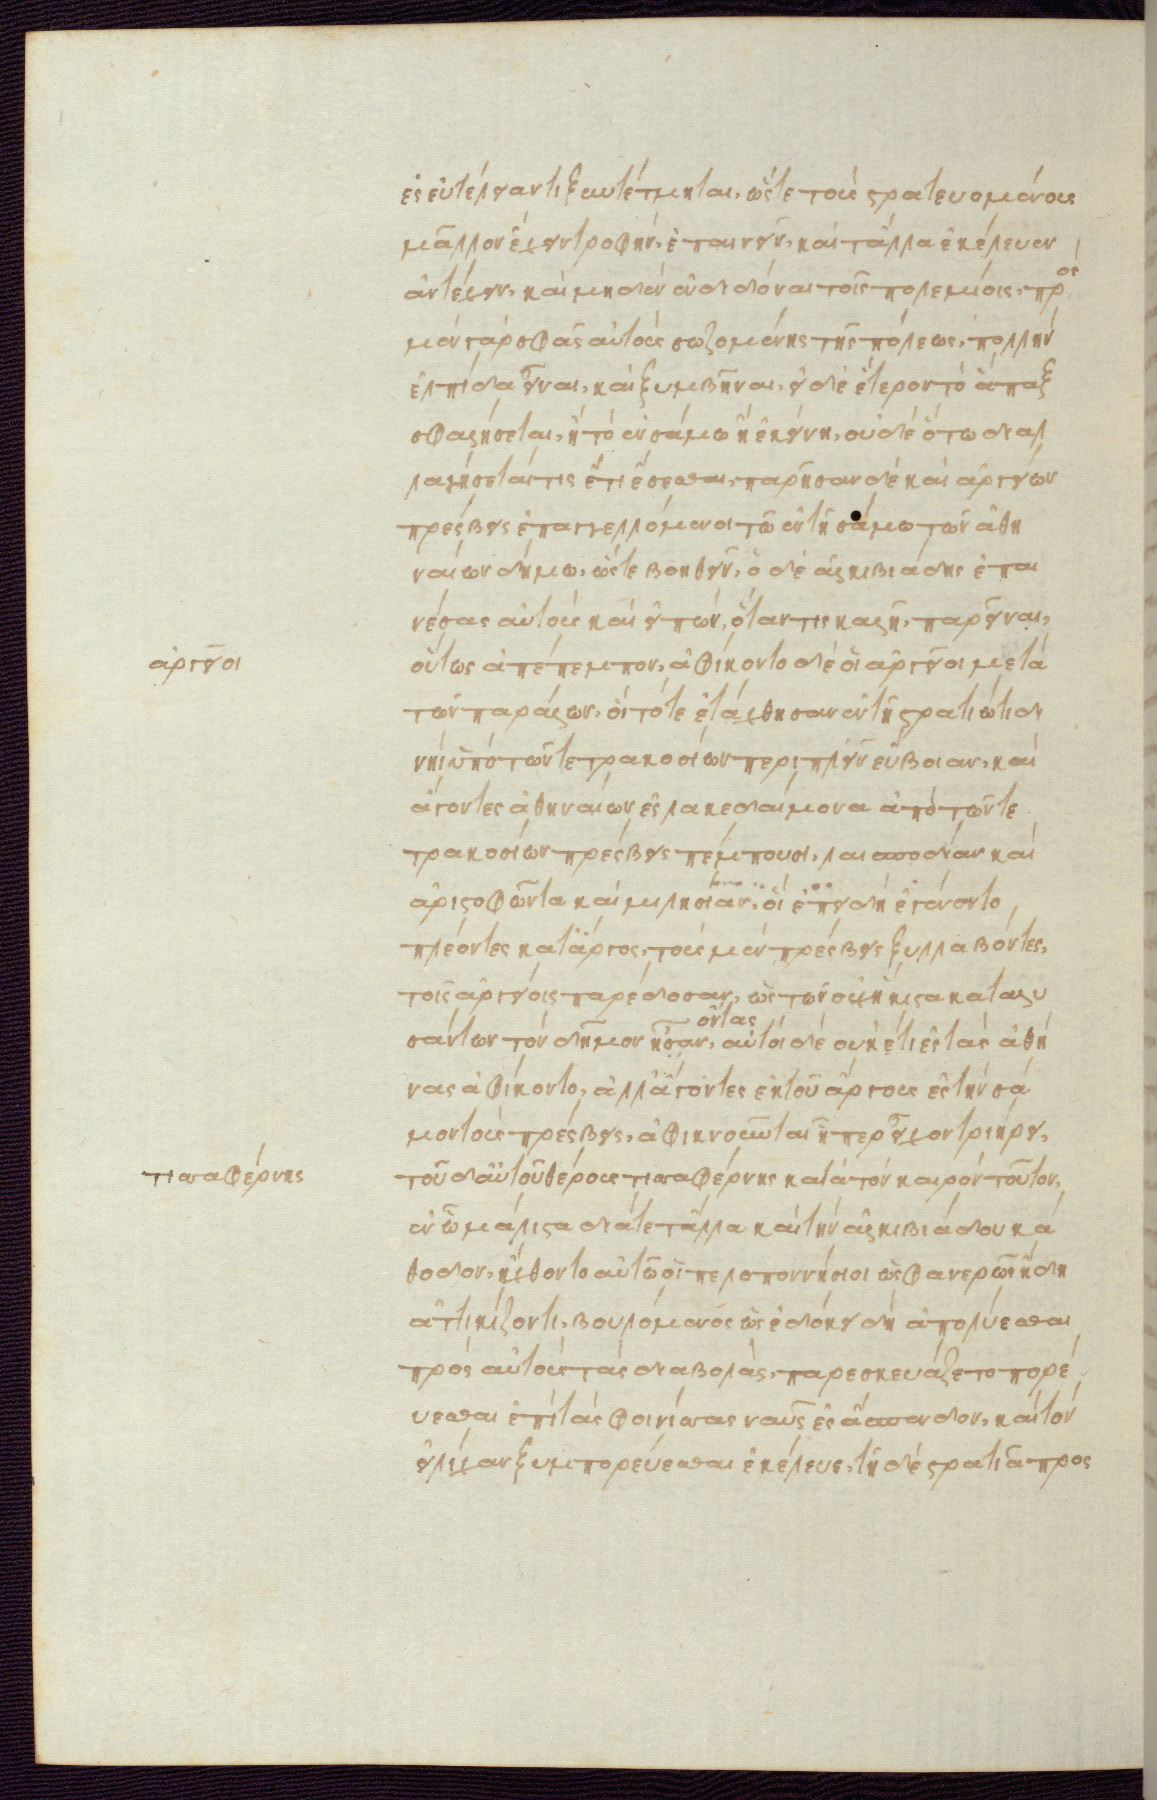 ἐς εὐτέλειαν τὶ ξυντέτμηται, ὥστε τοὺς στρατευομένους
μᾶλλον ἔχειν τροφὴν, ἐπαινεῖν, καὶ τἄλλα ἐκέλευεν
ἀντέχειν, καὶ μηδὲν ἐνδιδόναι τοῖς πολεμίοις, πρὸς
μὲν γὰρ σφᾶς αὐτοὺς σωζομένης τῆς πόλεως, πολλὴν
ἐλπίδα εἶναι, καὶ ξυμβῆναι, εἰ δὲ ἕτερον τὸ ἅπαξ
σφαλήσεται, ἢ τὸ ἐν σάμω ἢ ἐκείνη, οὐδὲ ὅτω διαλ
λαγήσεταί τις ἔτι ἔσεσθαι, παρῆσαν δὲ καὶ ἀργείων
πρέσβεις ἐπαγγελλόμενοι τῶ ἐν τῆ σάμω τῶν ἀθη
ναίων δήμω, ὥστε βοηθεῖν, ὁ δὲ ἀλκιβιάδης ἐπαι
νέσας αὐτοὺς καὶ εἰπὼν, ὅταν τις καλῆ, παρεῖναι,
ἀργεῖοι
οὕτως ἀπέπεμπον, ἀφίκοντο δὲ οἱ ἀργεῖοι μετὰ
τῶν παράλων, οἳ τότε ἐτάχθησαν ἐν τῆ στρατιώτιδι
νηὶ ὑπὸ τῶν τετρακοσίων περιπλεῖν εὔβοιαν, καὶ
ἄγοντες ἀθηναίων ἐς λακεδαίμονα ἀπὸ τῶν τε
τρακοσίων πρέσβεις πέμπουσι, λαισποδίαν καὶ
ἀριστοφῶντα καὶ μιλησίαν, οἳ ἐπειδὴ ἐγένοντο
πλέοντες κατ' ἄργος, τοὺς μὲν πρέσβεις ξυλλαβόντες,
τοῖς ἀργείοις παρέδοσαν, ὡς τῶν οὐχ ἥκιστα καταλυ
σάντων τὸν δῆμον ἦσαν, ὄντας αὐτοὶ δὲ οὐκέτι ἐς τὰς ἀθή
νας ἀφίκοντο, ἀλλ' ἄγοντες ἐκ τοῦ ἄργους ἐς τὴν σά
μον τοὺς πρέσβεις, ἀφικνοῦνται ἧπερ εἶχον τριήρει,
τισσαφέρνης
τοῦ δ' αὐτοῦ θέρους τισσαφέρνης κατὰ τὸν καιρὸν τοῦτον,
ἐν ὧ μάλιστα διά τε τἄλλα καὶ τὴν ἀλκιβιάδου κά
θοδον, ἤχθοντο αὐτῶ οἱ πελοποννήσιοι ὡς φανερῶς ἤδη
ἀττικίζοντι, βουλόμενος ὡς ἐδόκει δὴ ἀπολύεσθαι
πρὸς αὐτοὺς τὰς διαβολὰς, παρεσκευάζετο πορέ
υεσθαι ἐπὶ τὰς φοινίσσας ναῦς ἐς ἄσπενδον, καὶ τὸν
εἴλιχαν ξυμπορεύεσθαι ἐκέλευε, τῆ δὲ στρατιᾶ προς